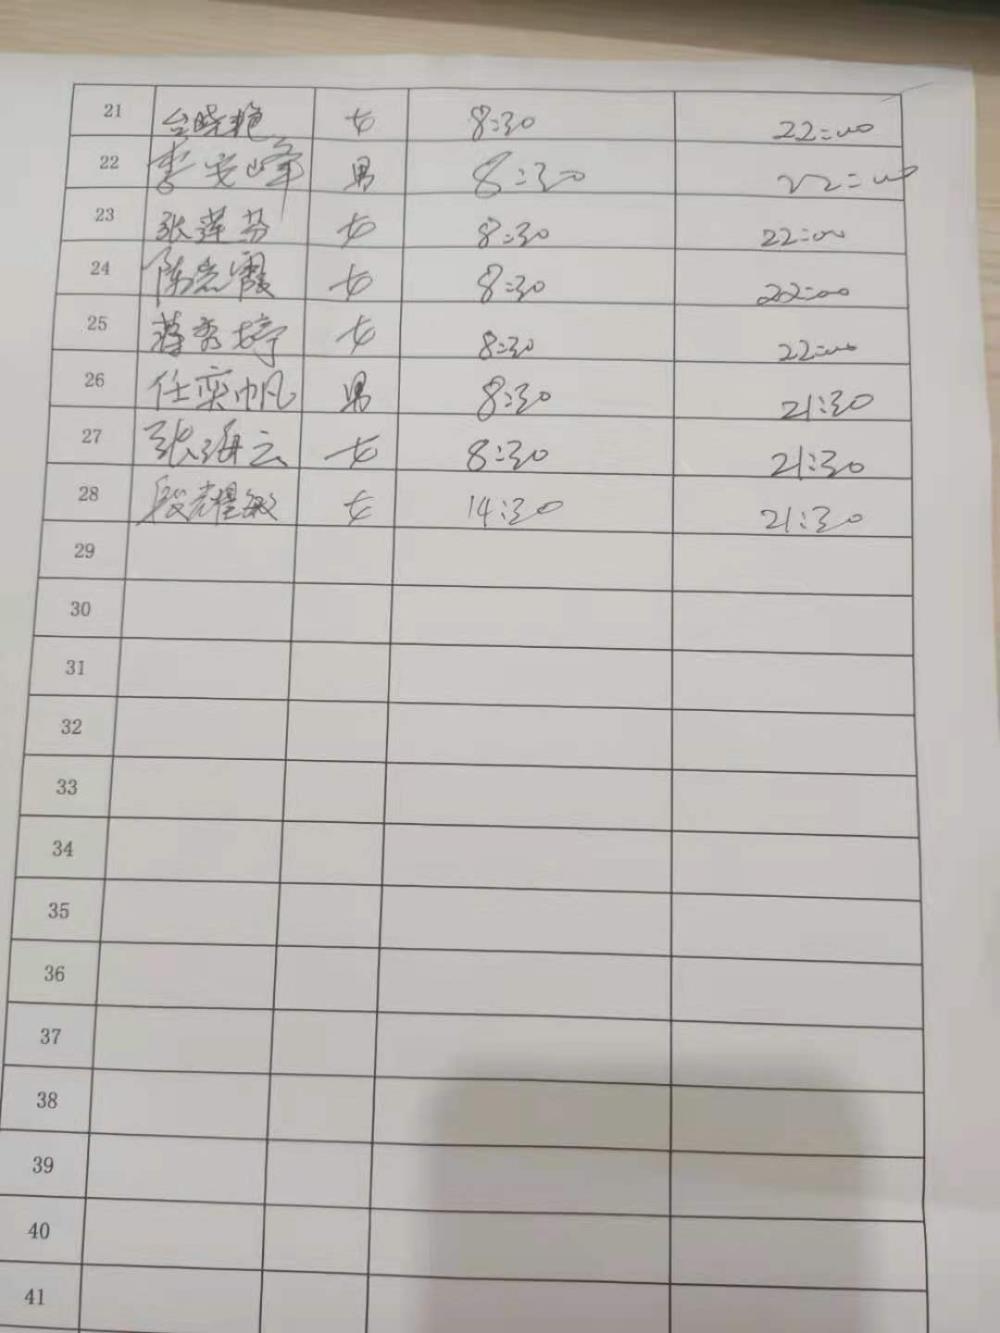 21 台晓艳 女 8:30 22:00
22 李安峰 男 8:30 22:00
23 张莲芬 女 8:30 22:00
24 陈宏霞 女 8:30 22:00
25 蒋秀婷 女 8:30 22:00
26 任奕帆 男 8:30 21:30
27 张海云 女 8:30 21:30
28 段耀敏 女 14:30 21:30
29
30
31
32
33
34
35
36
37
38
39
40
41